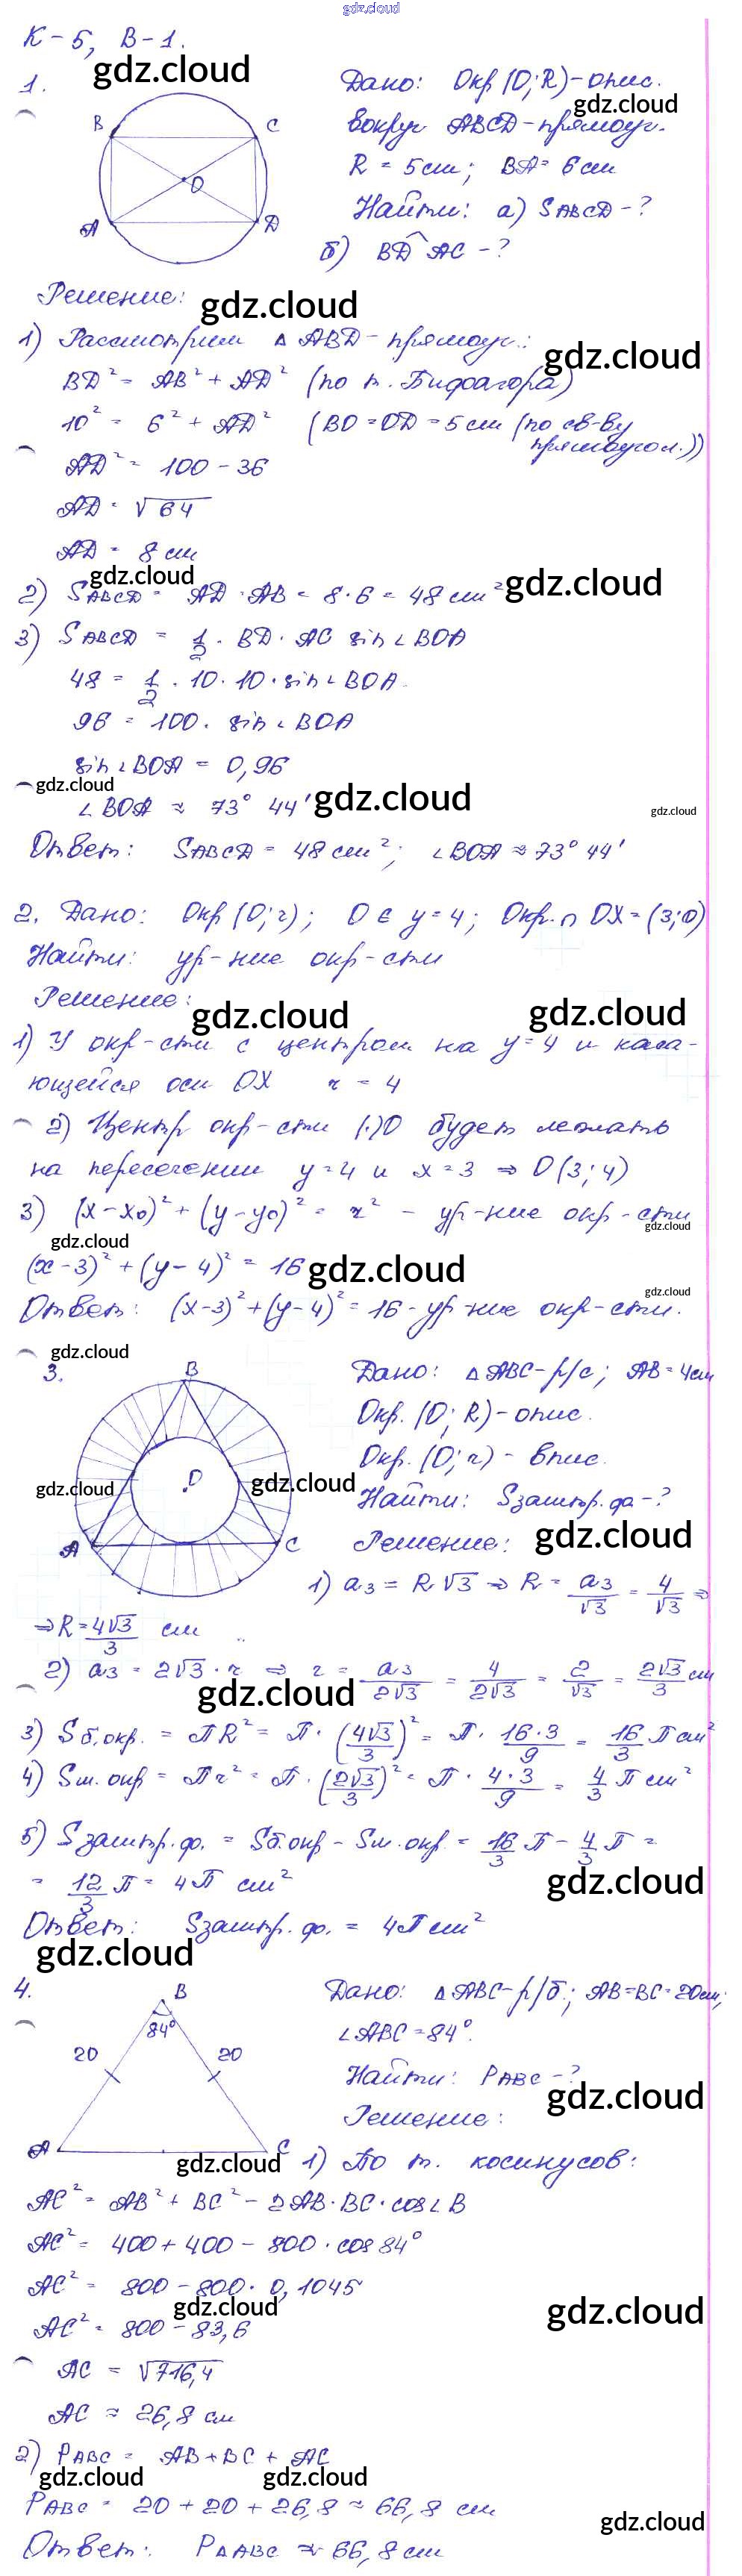 gdz.cloud
К-5, В-1.
gdz.cloud
1.
Дано: Окр (O; R) - опис.
gdz.cloud
вокруг ABCD - прямоуг.
R = 5 см; BA = 6 см
Найти: а) SABCD - ?
б) BD^AC - ?
B
C
O
A
D
Решение:
gdz.cloud
1) Рассмотрим △ ABD - прямоуг.:
gdz.cloud
BD² = AB² + AD² (по т. Пифагора)
10² = 6² + AD² (BO = OD = 5 см (по св-ву
прямоугол.))
AD² = 100 - 36
AD = √64
AD = 8 см
gdz.cloud
2) SABCD = AD · AB = 8 · 6 = 48 см²
gdz.cloud
3) SABCD = 1/2 · BD · AC sin ∠BOA
48 = 1/2 · 10 · 10 · sin ∠BOA
96 = 100 · sin ∠BOA
sin ∠BOA = 0,96
gdz.cloud
∠BOA ≈ 73° 44'
gdz.cloud
gdz.cloud
Ответ: SABCD = 48 см²; ∠BOA ≈ 73° 44'
2. Дано: Окр (O; r); O ∈ y = 4; Окр. ∩ OX = (3; 0)
Найти: ур-ние окр-сти
Решение:
gdz.cloud
gdz.cloud
1) У окр-сти с центром на y = 4 и каса-
ющейся оси OX r = 4
2) Центр окр-сти (·)O будет лежать
на пересечении y = 4 и x = 3 ⇒ O (3; 4)
3) (x - x0)² + (y - y0)² = r² - ур-ние окр-сти
gdz.cloud
gdz.cloud
(x - 3)² + (y - 4)² = 16
gdz.cloud
gdz.cloud
Ответ: (x-3)² + (y-4)² = 16 - ур-ние окр-сти.
gdz.cloud
3.
B
Дано: △ ABC - р/с; AB = 4 см
Окр. (O; R) - опис.
Окр. (O; r) - впис.
O
gdz.cloud
gdz.cloud
Найти: Sзаштр. ф. - ?
A
C
Решение:
gdz.cloud
1) a3 = R√3 ⇒ R = a3/√3 = 4/√3 ⇒
⇒ R = 4√3/3 см
2) a3 = 2√3 · r ⇒ r = a3/2√3 = 4/2√3 = 2/√3 = 2√3/3 см
gdz.cloud
3) Sб.окр. = ПR² = П · (4√3/3)² = П · 16·3/9 = 16/3 П см²
4) Sм.окр = Пr² = П · (2√3/3)² = П · 4·3/9 = 4/3 П см²
5) Sзаштр. ф. = Sб.окр - Sм.окр = 16/3 П - 4/3 П =
= 12/3 П = 4П см²
gdz.cloud
Ответ: Sзаштр. ф. = 4П см²
gdz.cloud
4.
B
84°
20
20
A
C
Дано: △ ABC - р/б; AB = BC = 20 см;
∠ABC = 84°.
Найти: PABC - ?
gdz.cloud
Решение:
gdz.cloud
1) По т. косинусов:
AC² = AB² + BC² - 2AB · BC · cos ∠B
AC² = 400 + 400 - 800 · cos 84°
AC² = 800 - 800 · 0,1045
gdz.cloud
gdz.cloud
AC² = 800 - 83,6
AC = √716,4
AC ≈ 26,8 см
2) PABC = AB + BC + AC
gdz.cloud
gdz.cloud
PABC = 20 + 20 + 26,8 ≈ 66,8 см
gdz.cloud
Ответ: P△ABC ≈ 66,8 см